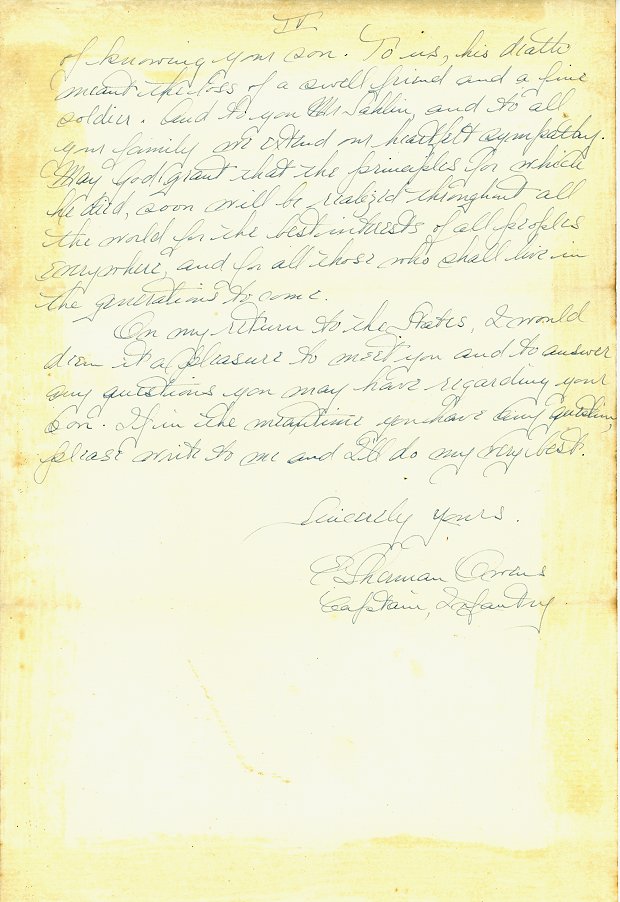 IV
of knowing your son. To us, his death
meant the loss of a swell friend and a fine
soldier. And to you Mr Sahlin, and to all
your family we extend our heartfelt sympathy.
May God grant that the principles for which
he died, soon will be realized throughout all
the world for the best interests of all peoples
everywhere, and for all those who shall live in
the generations to come.
On my return to the States, I would
deem it a pleasure to meet you and to answer
any questions you may have regarding your
son. If in the meantime you have any question,
please write to me and I'll do my very best.
Sincerely yours.
E Sherman Owens
Captain, Infantry